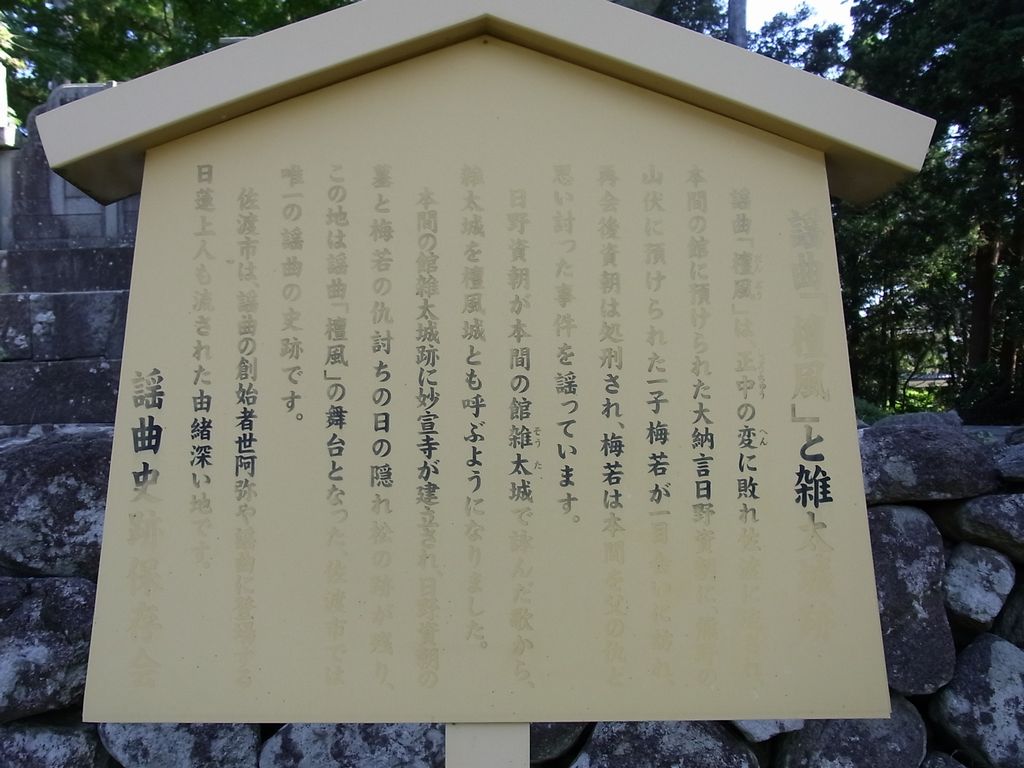 謡曲「檀風」と雑太城跡
謡曲「檀風」は、正中の変に敗れ佐渡に流され、
本間の館に預けられた大納言日野資朝に、熊野の
山伏に預けられた一子梅若が一目会いに訪れ、
再会後資朝は処刑され、梅若は本間を父の仇と
思い討った事件を謡っています。
日野資朝が本間の館雑太城で詠んだ歌から、
雑太城を檀風城とも呼ぶようになりました。
本間の館雑太城跡に妙宣寺が建立され、日野資朝の
墓と梅若の仇討ちの日の隠れ松の跡が残り、
この地は謡曲「檀風」の舞台となった、佐渡市では
唯一の謡曲の史跡です。
佐渡市は、謡曲の創始者世阿弥や謡曲に登場する
日蓮上人も流された由緒深い地です。
謡曲史跡保存会